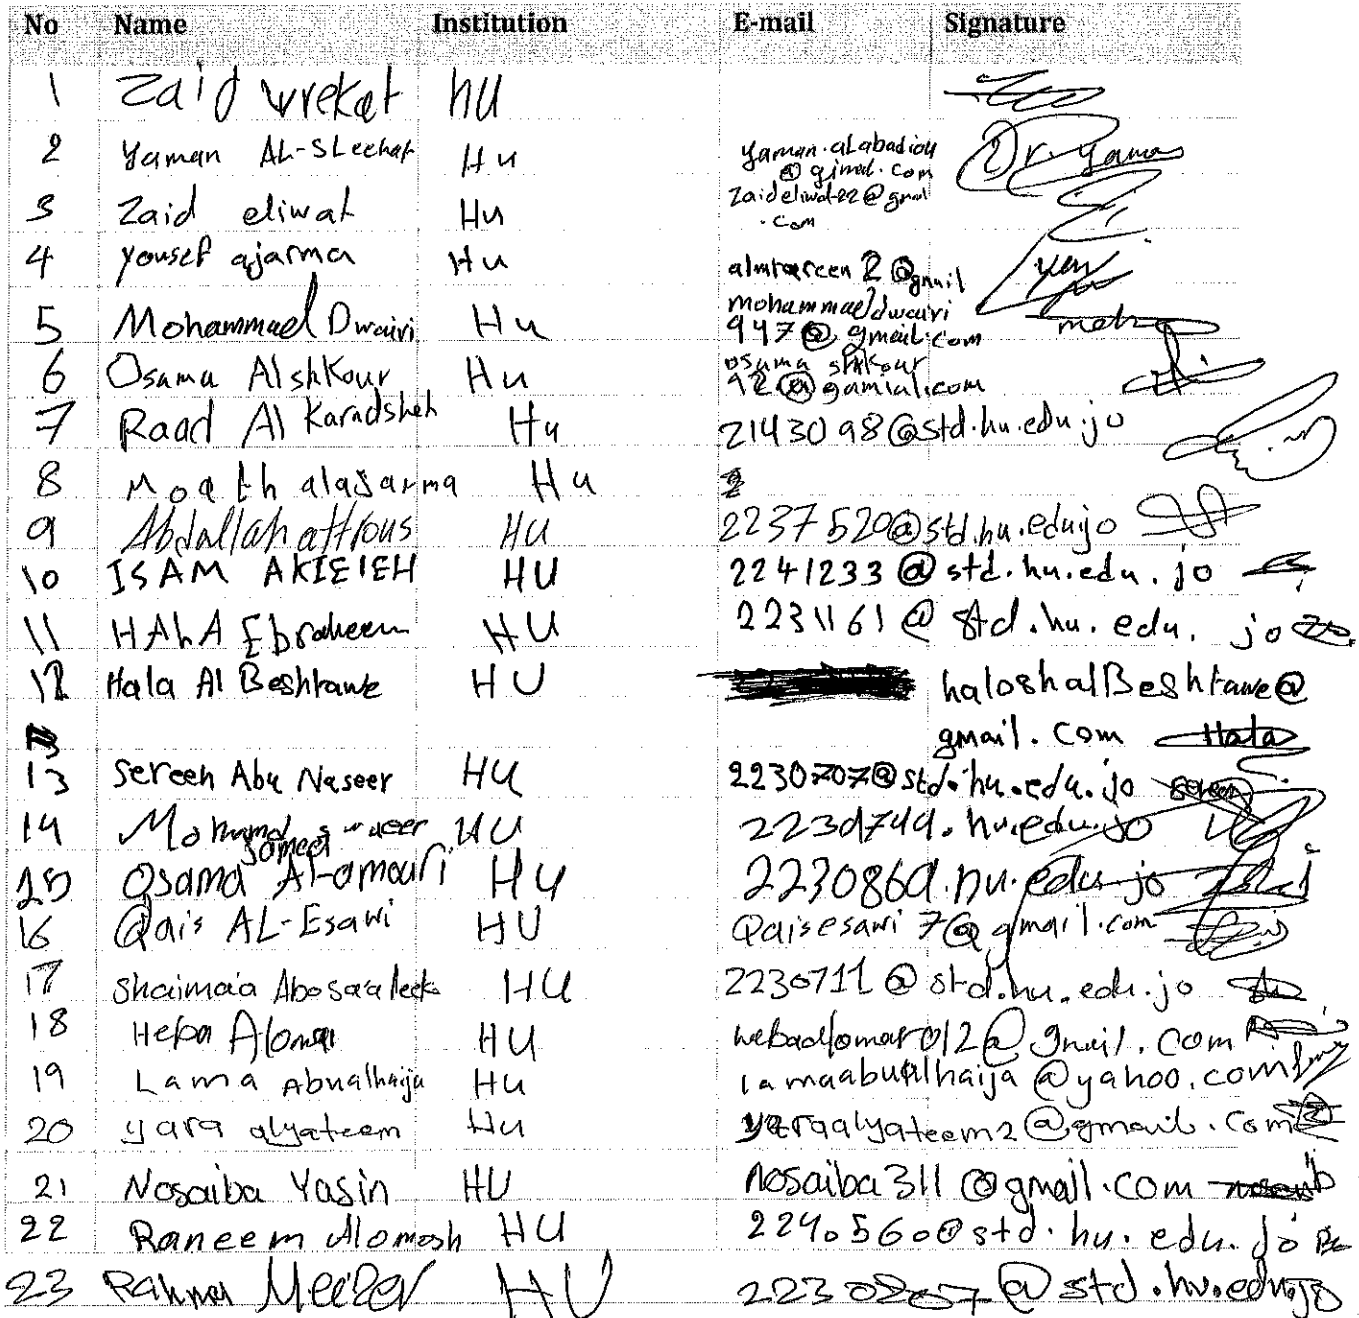 No Name Institution E-mail Signature
1 Zaid wrekat hu
2 Yaman AL-SLeehat Hu yaman.alabadiou
@gimal.com Dr.yaman
3 Zaid eliwat Hu Zaideliwat22@gmal
.com
4 yousef ajarma Hu @gmail
5 Mohammad Dwairi Hu mohammaddwairi
947@gmail.com
6 Osama Alshkour Hu osama shkour
92@gamial.com
7 Raad Al Karadsheh Hu 2143098@std.hu.edu.jo
8 Moath alaJarma Hu
9 Abdallah attious Hu 2237520@std.hu.edu.jo
10 ISAM AKIEIEH HU 2241233@std.hu.edu.jo
11 HALA Ebraheem HU 2231161@std.hu.edu.jo
12 Hala Al Beshtawe HU haloshalBeshtawe@
gmail.com Hala
13 Sereen Abu Naseer HU 2230707@std.hu.edu.jo sereen
14 HU .hu.edu.jo
15 Osama Al-amouri HU .hu.edu.jo
16 Qais AL-Esawi HU Qaisesawi7@gmail.com
17 Shaimaa HU 2230711@std.hu.edu.jo
18 Heba Alomar HU hebaalomar012@gmail.com
19 Lama Abualhaija Hu lamaabualhaija@yahoo.com
20 yara alyateem Hu yaraalyateem2@gmail.com
21 Nosaiba Yasin HU nosaiba311@gmail.com
22 Raneem Alomosh HU 2240560@std.hu.edu.jo
23 HU 2230807@std.hu.edu.jo